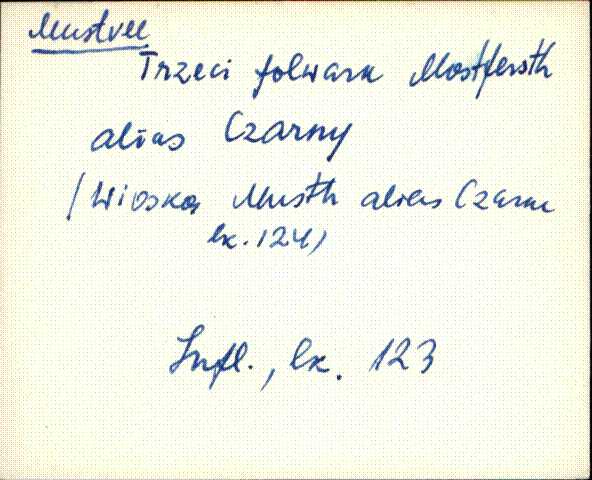 Mustvee
Trzeci folwark Mostfersth
alias Czarny
(Wioska Musth alias Czarna
lk. 124)
Infl., lk. 123